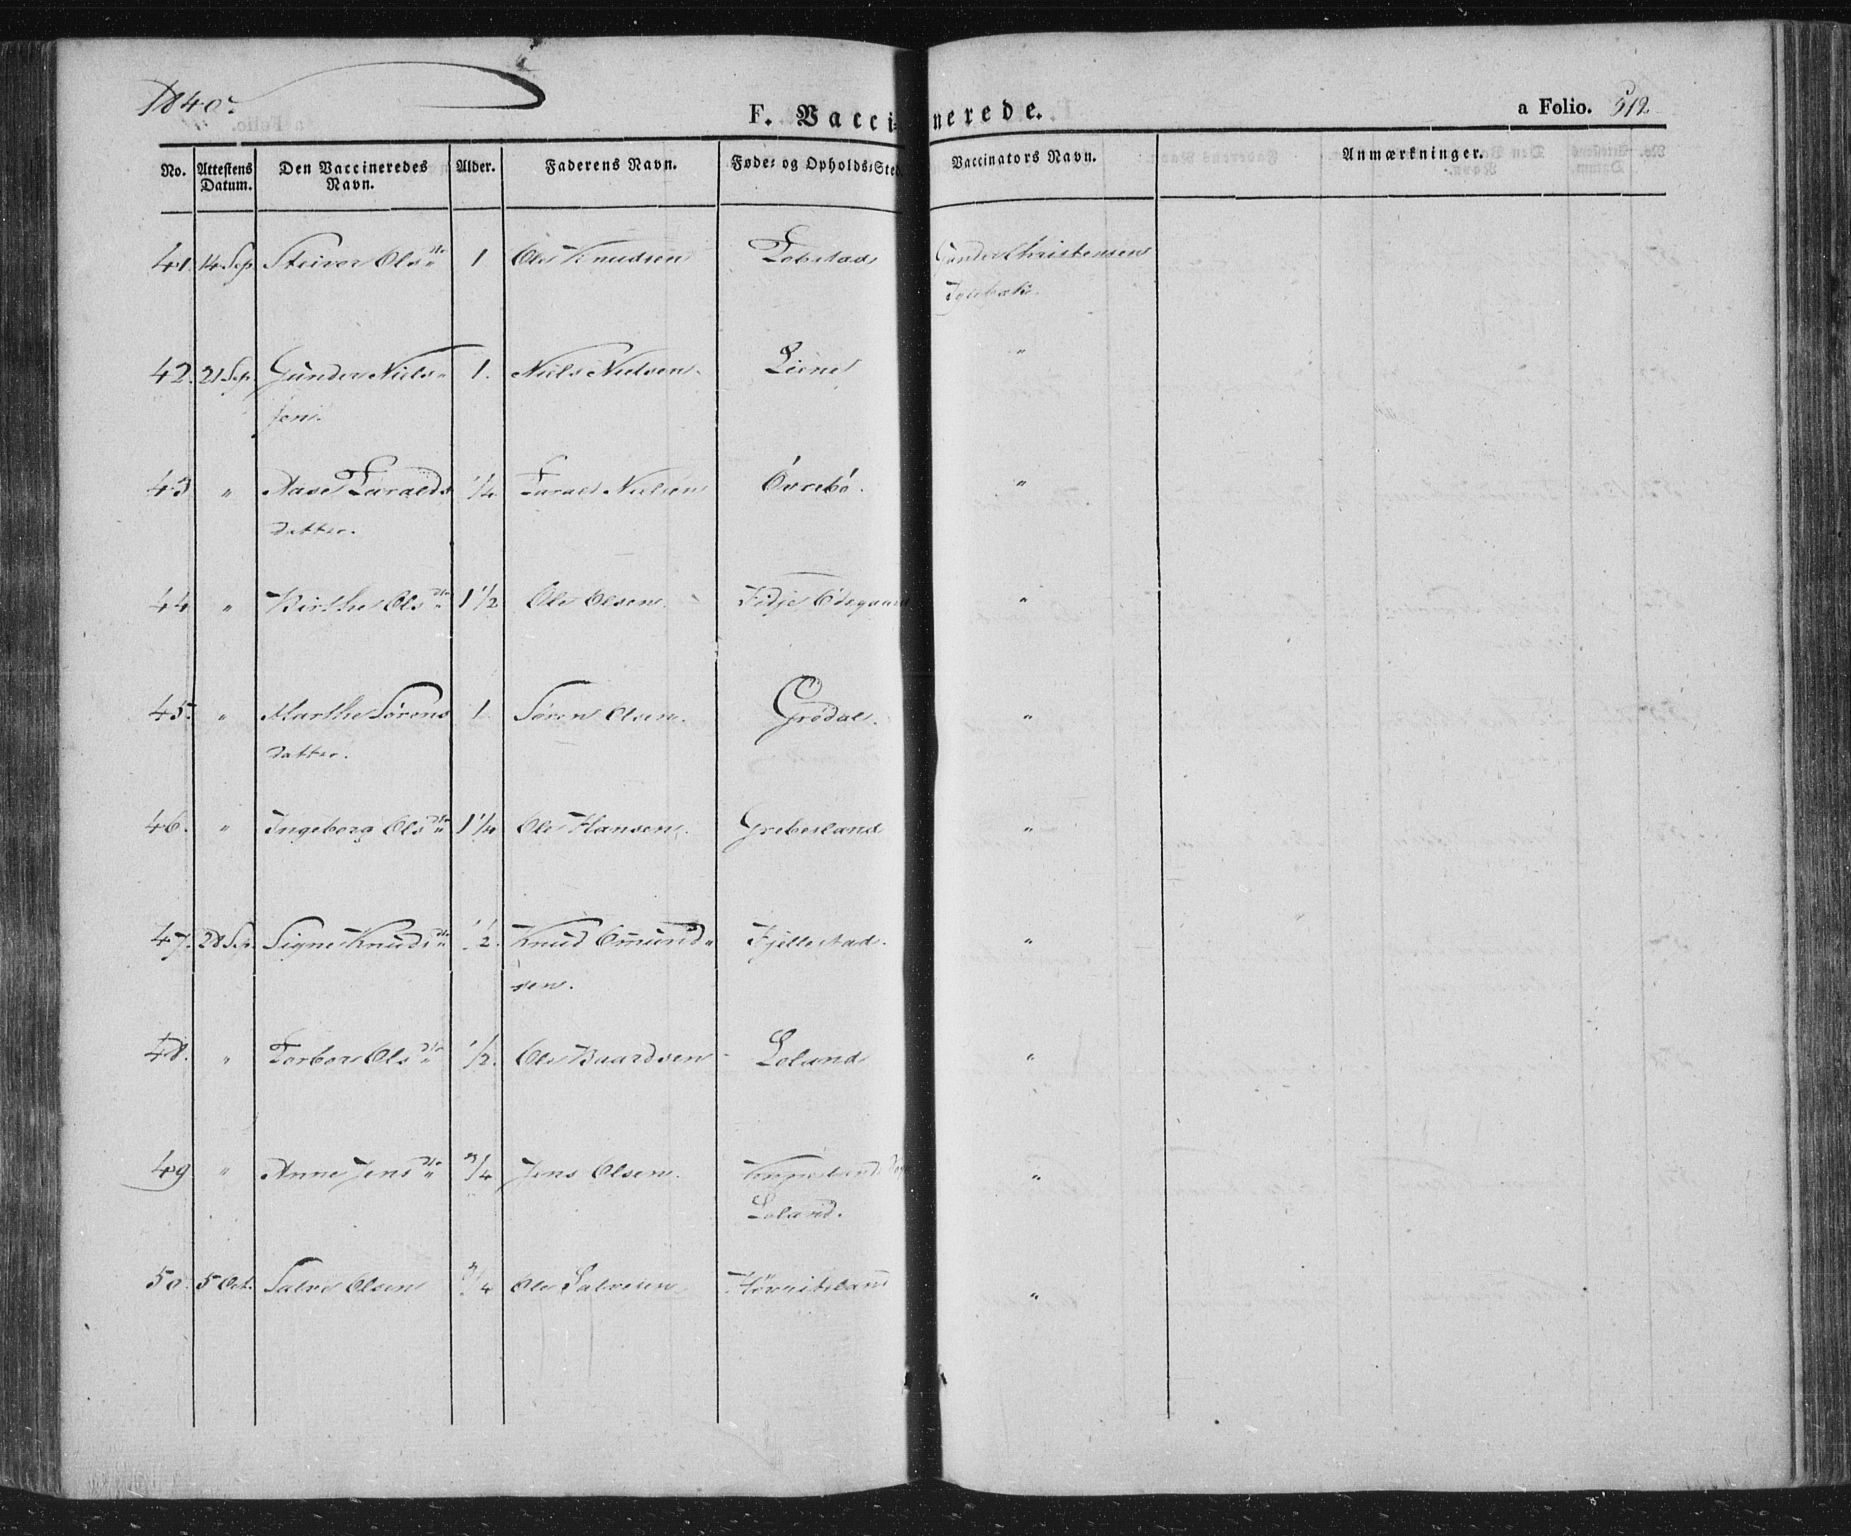 1840.
F. Vaccinerede.
a Folio. 512
No. Attestens Datum. Den Vaccineredes Navn. Alder. Faderens Navn. Føde- og Opholds-Sted. Vaccinators Navn. Anmærkninger.
41. 14 Sep Ols dtr 1 Ole Knudsen Gunder Christensen
42. 21 Sep. Gunder Niels- 1. Niels Nielsen. Liene "
sen.
43 " Aase Taralds 1/4 Tarald Nielsen Övrebö. "
datter.
44 " Birthe Ols dtr 1 1/2 Ole Olsen. Fidje Ödegaard "
45. " Marthe Sörens 1 Sören Olsen. Grödal. "
datter.
46. " Ingeborg Ols dtr 1 1/4 Ole Hansen. Grebesland "
47. 28 Sep. Signe Knuds dtr 1/2. Knud Omund- Fjellestad. "
sen.
48. " Torbor Ols dtr 1/2. Ole Baardsen Loland "
49 " Anne Jens dtr 3/4 Jens Olsen. "
Loland.
50. 5 Oct. Salve Olsen 3/4 Ole Salvesen "